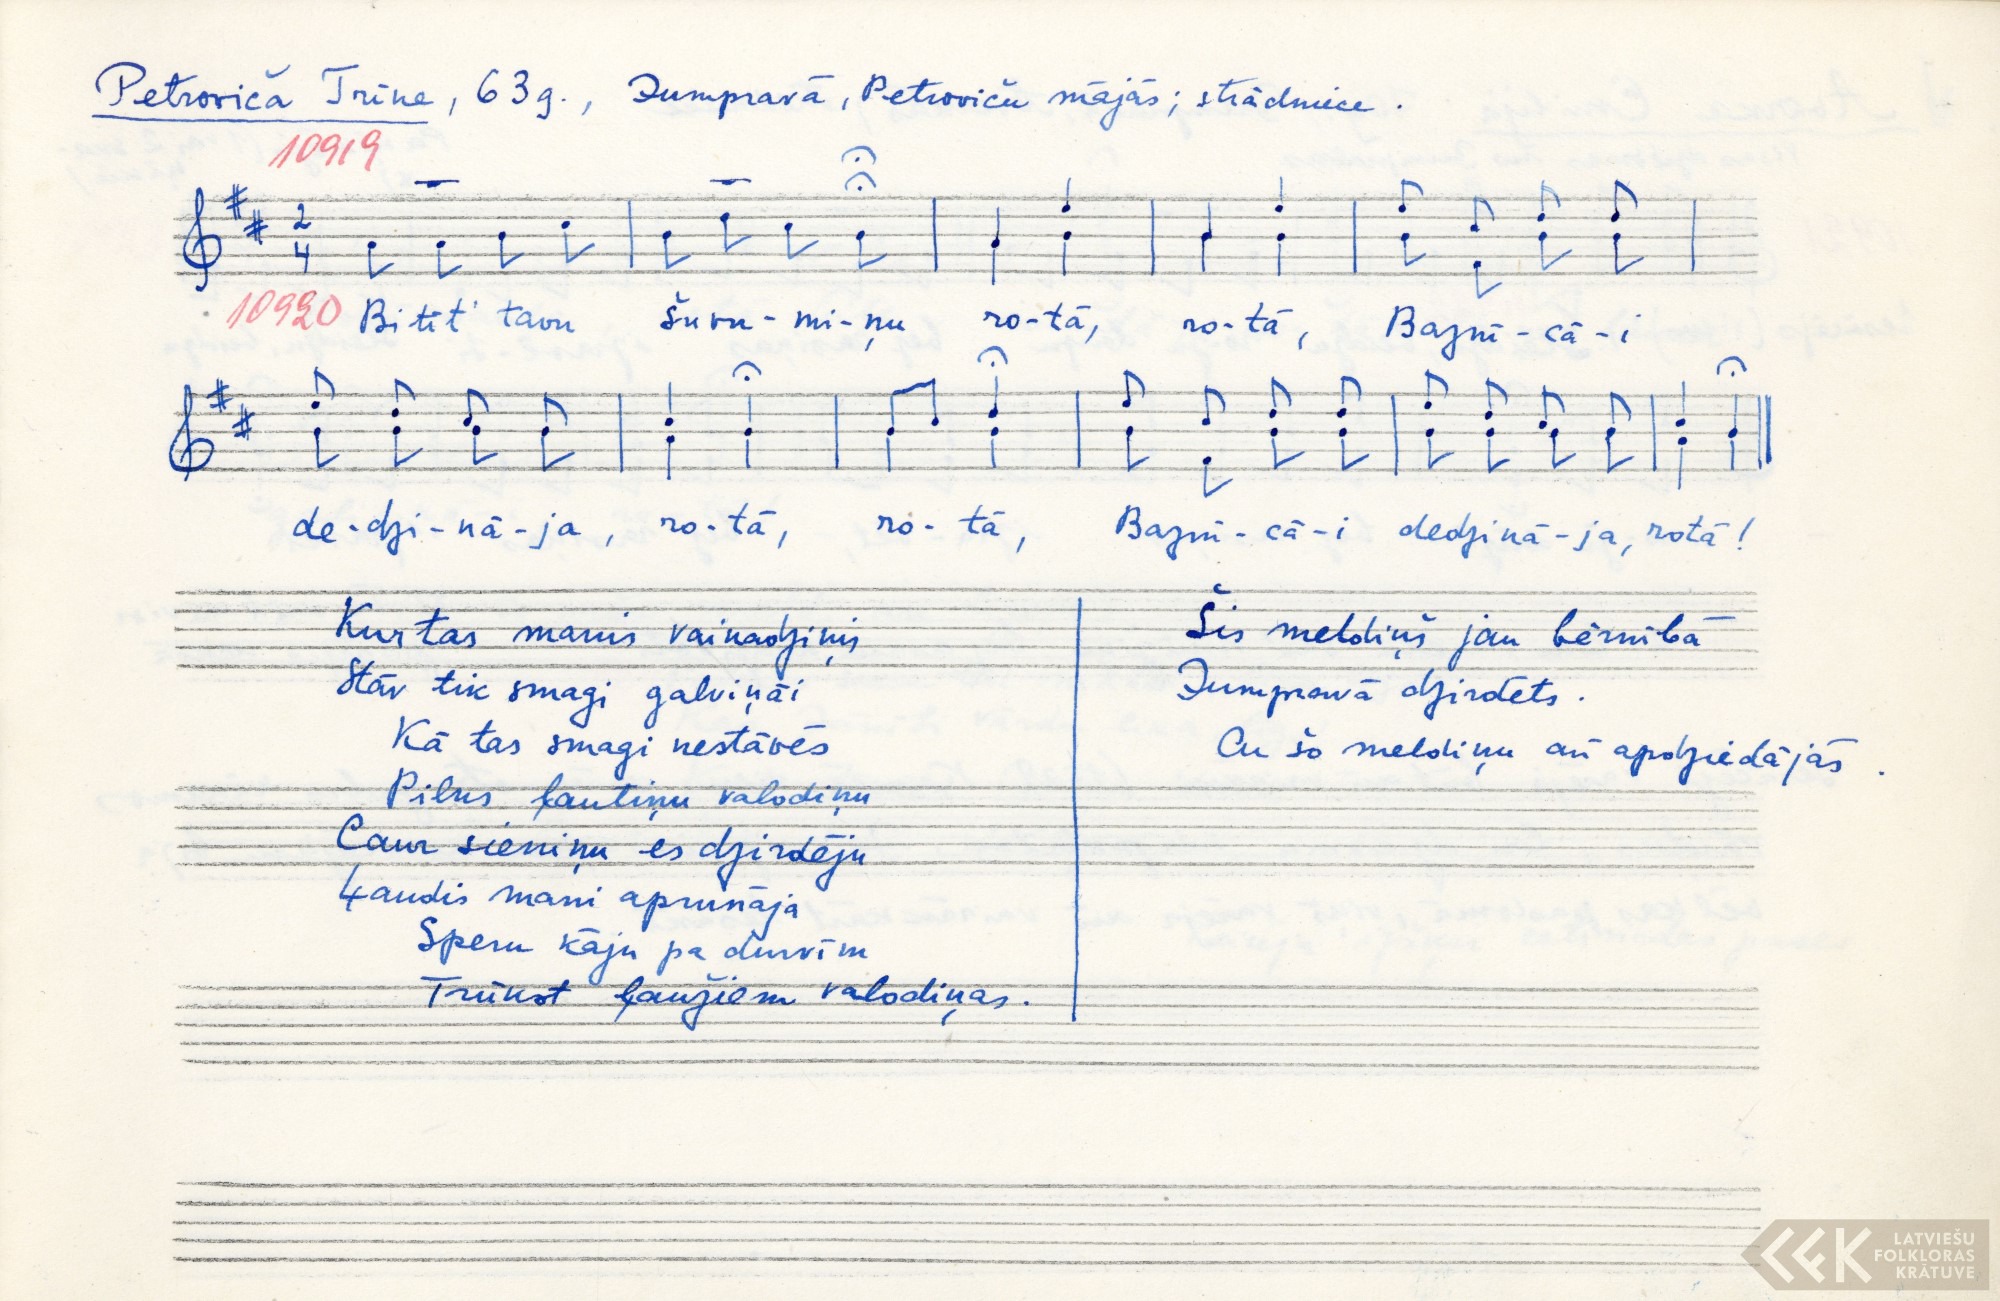 Petroviča Trīne, 63g., Jumpravā, Petroviču mājās; strādniece.
10919
2
4
10920 Bitīt' tavu šuvu-mi-ņu ro-tā, ro-tā, Baznī-cā-i
de-dzi-nā-ja, ro-tā, ro-tā, Baznī-cā-i dedzinā-ja, rotā!
Kur tas manis vainadziņis
Stāv tik smagi galviņāi
Kā tas smagi nestāvēs
Pilns ļautiņu valodiņu
Caur sieniņu es dzirdēju
Ļaudis mani aprunāja
Speru kāju pa durvīm
Trūkst ļaužiem valodiņas.
Šis meldiņš jau bērnībā
Jumpravā dzirdēts.
Cu šo meldiņu arī apdziedājās.
LATVIEŠU
FOLKLORAS
KRĀTUVE